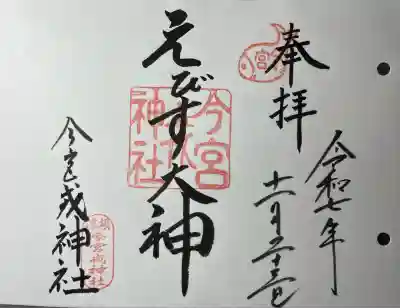 奉拝
令和七年
十一月二十三日
えびす大神
今宮戎神社
今宮戎神社